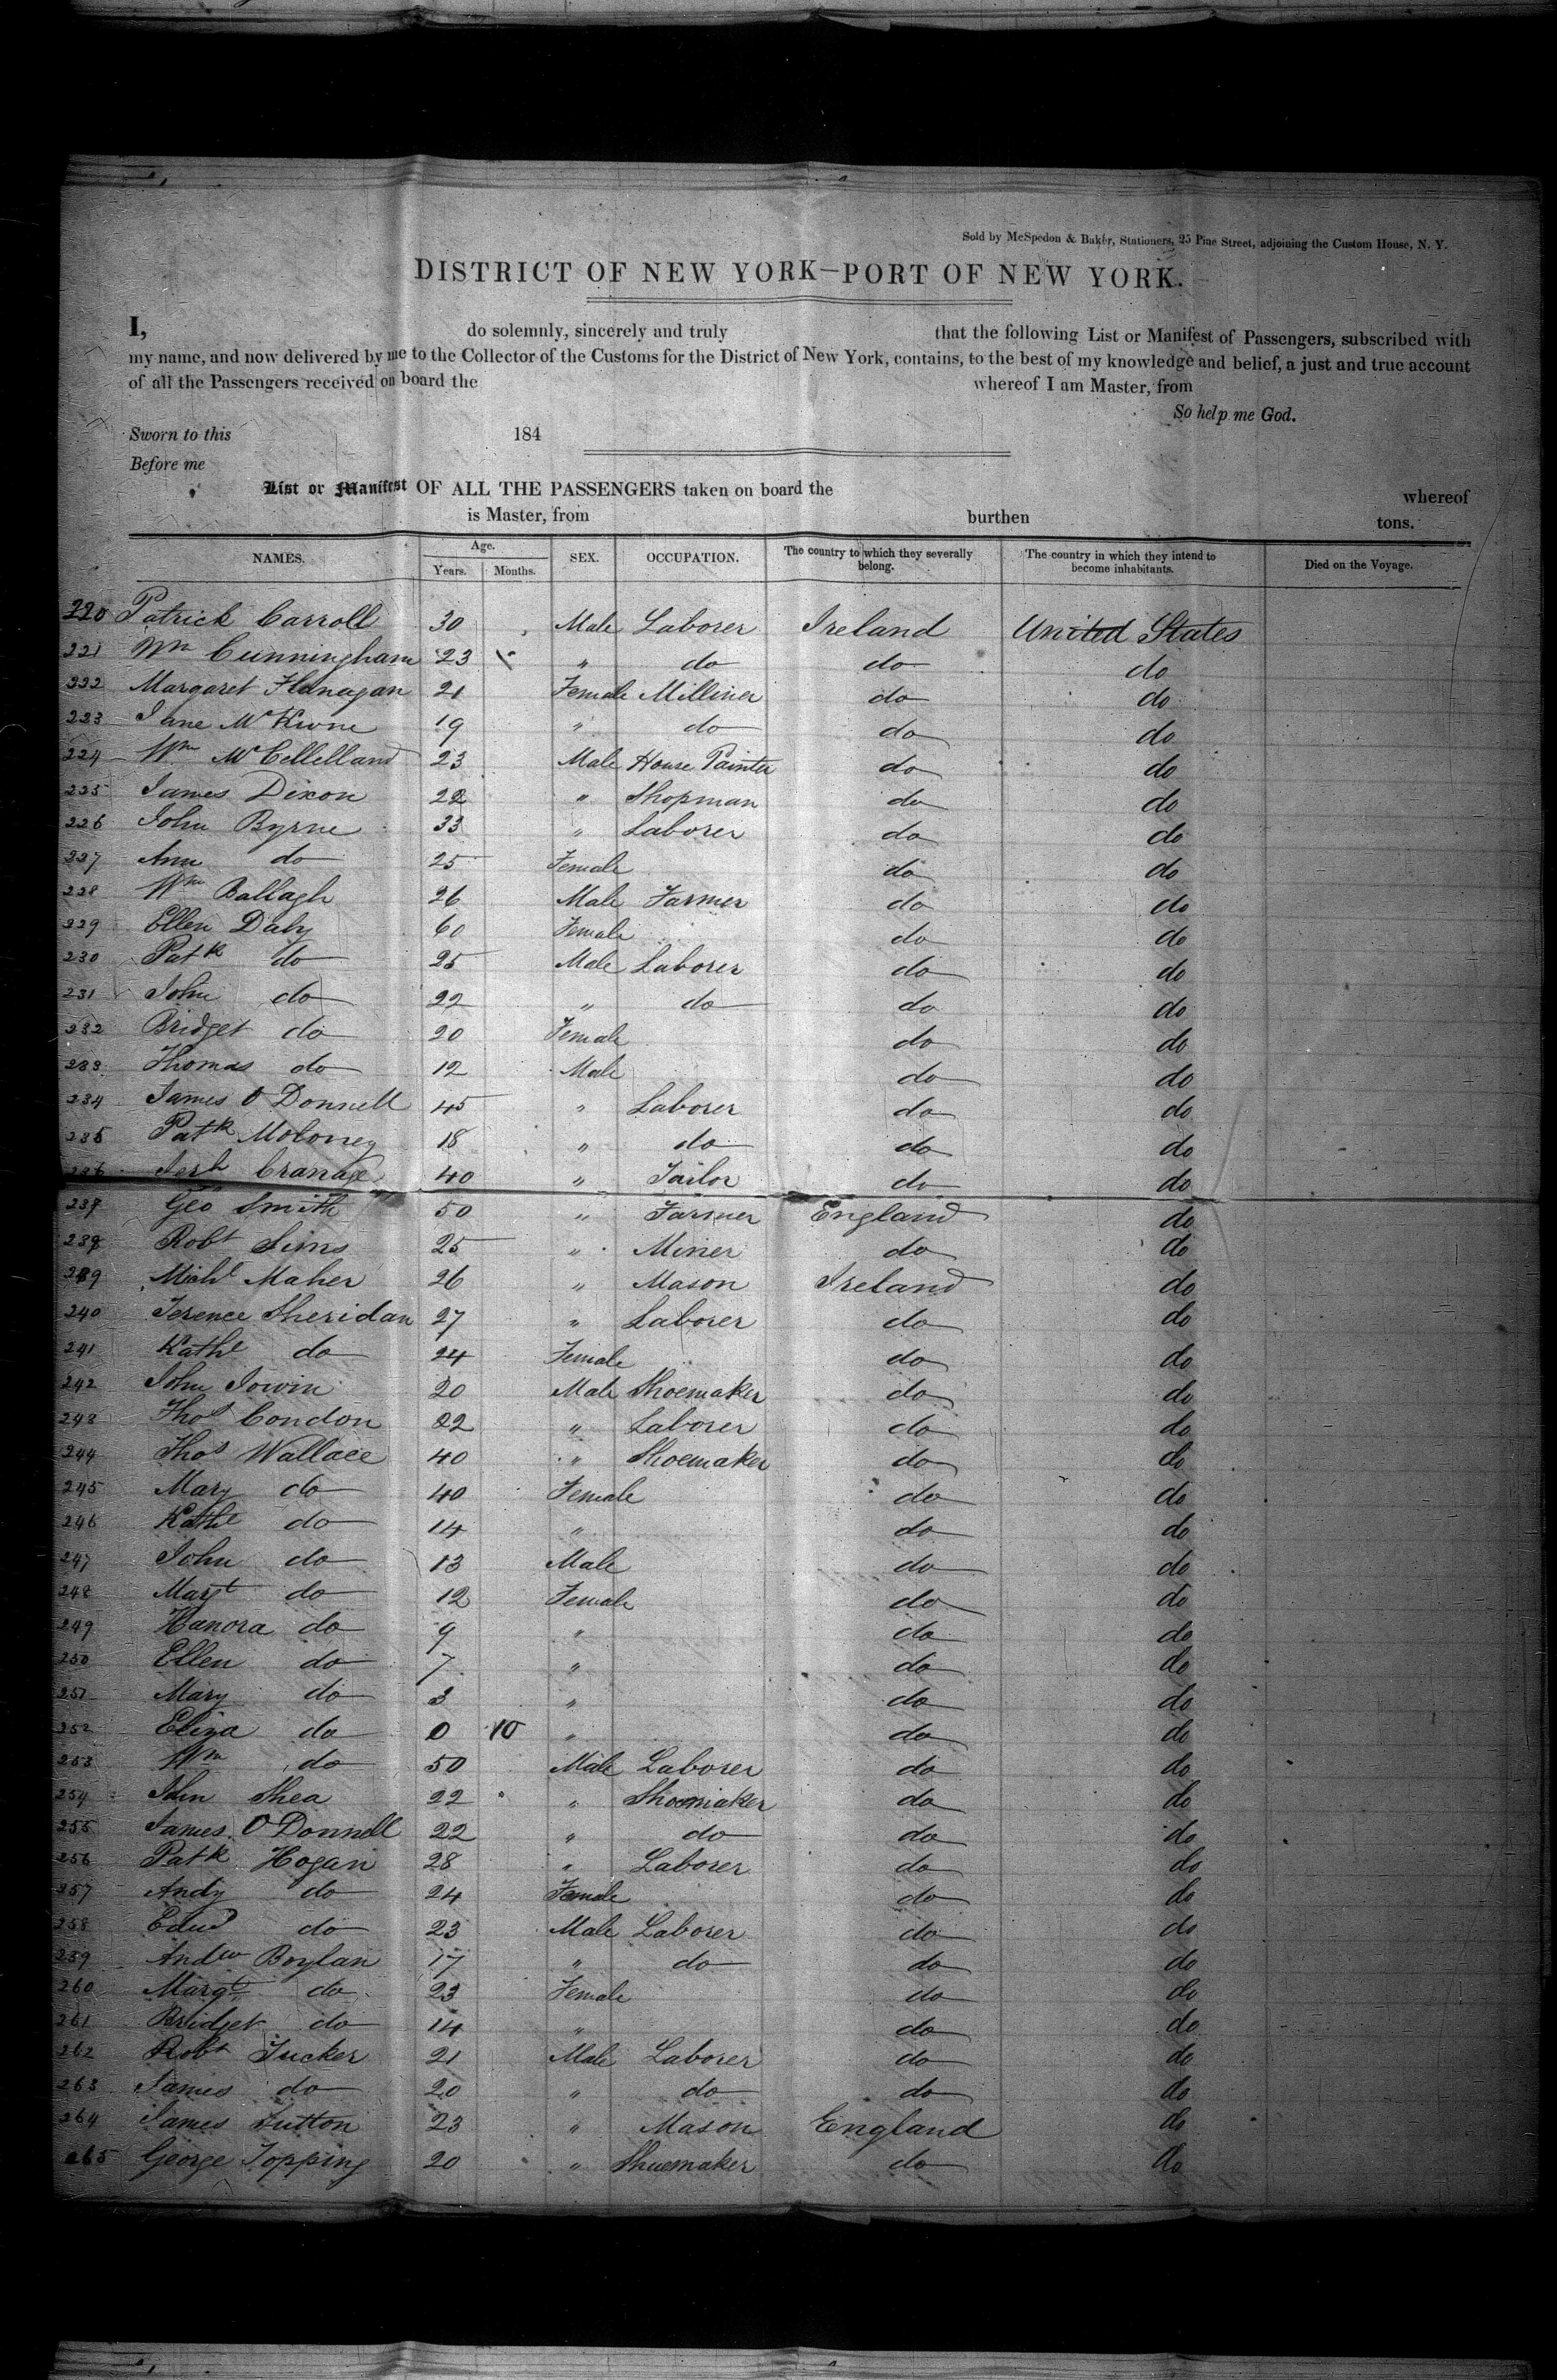 Sold by McSpedon & Baker, Stationers, 25 Pine Street, adjoining the Custom House, N. Y.
DISTRICT OF NEW YORK—PORT OF NEW YORK.
I, do solemnly, sincerely and truly that the following List or Manifest of Passengers, subscribed with
my name, and now delivered by me to the Collector of the Customs for the District of New York, contains, to the best of my knowledge and belief, a just and true account
of all the Passengers received on board the whereof I am Master, from
So help me God.
Sworn to this 184
Before me
List or Manifest OF ALL THE PASSENGERS taken on board the whereof
is Master, from burthen tons.
NAMES. Age. Years. Months. SEX. OCCUPATION. The country to which they severally belong. The country in which they intend to become inhabitants. Died on the Voyage.
220 Patrick Carroll 30 Male Laborer Ireland United States
221 Wm Cunningham 23 " do do do
222 Margaret Flanagan 21 Female Milliner do do
223 Jane 19 " do do do
224 Wm McCellelland 23 Male House Painter do do
225 James Dixon 22 " Shopman do do
226 John Byrne 33 " Laborer do do
227 Ann do 25 Female do do
228 Wm Ballagh 26 Male Farmer do do
229 Ellen Daly 60 Female do do
230 Patk do 25 Male Laborer do do
231 John do 22 " do do do
232 Bridget do 20 Female do do
233 Thomas do 12 Male do do
234 James O Donnell 45 " Laborer do do
235 Patk Moloney 18 " do do do
236 40 " Tailor do do
237 Geo Smith 50 " Farmer England do
238 Robt Sims 25 " Miner do do
239 Michl Maher 26 " Mason Ireland do
240 Terence Sheridan 27 " Laborer do do
241 Kathe do 24 Female do do
242 John 20 Male Shoemaker do do
243 Thos Condon 22 " Laborer do do
244 Thos Wallace 40 " Shoemaker do do
245 Mary do 40 Female do do
246 Kathe do 14 " do do
247 John do 13 Male do do
248 Margt do 12 Female do do
249 Hanora do 9 " do do
250 Ellen do 7 " do do
251 Mary do 3 " do do
252 Eliza do 0 10 " do do
253 Wm do 50 Male Laborer do do
254 John Shea 22 " Shoemaker do do
255 James O Donnell 22 " do do do
256 Patk Hogan 28 " Laborer do do
257 Andy do 24 Female do do
258 Edwd do 23 Male Laborer do do
259 Andw Boylan 17 " do do do
260 Margt do 23 Female do do
261 Bridget do 14 " do do
262 Robt Tucker 21 Male Laborer do do
263 James do 20 " do do do
264 James Sutton 23 " Mason England do
265 George Topping 20 " Shuemaker do do